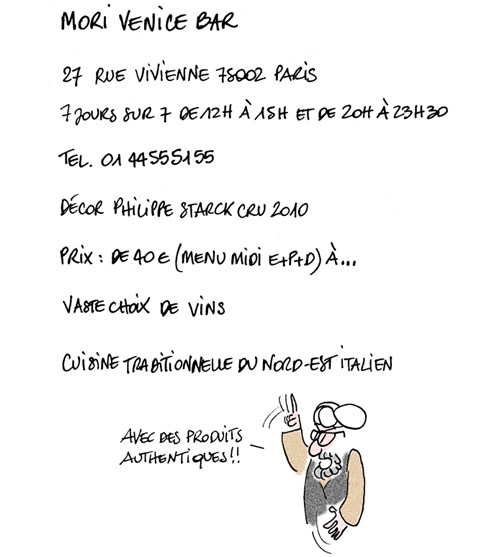 MORI VENICE BAR
27 RUE VIVIENNE 75002 PARIS
7 JOURS SUR 7 DE 12H À 15H ET DE 20H À 23H30
TEL. 01 44555155
DÉCOR PHILIPPE STARCK CRU 2010
PRIX : DE 40 € (MENU MIDI E+P+D) À...
VASTE CHOIX DE VINS
CUISINE TRADITIONNELLE DU NORD-EST ITALIEN
AVEC DES PRODUITS
AUTHENTIQUES!!